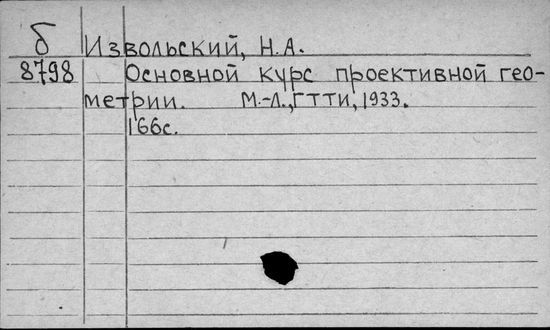 б Извольский, Н.А.
8798 Основной курс проективной гео-
метрии. М.-Л., ГТТИ, 1933.
166с.